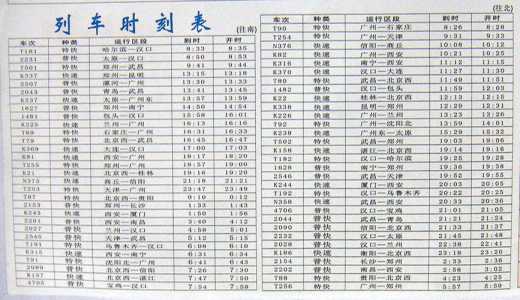 列车时刻表 (往南)
车次 种类 运行区段 到时 开时
T181 特快 哈尔滨—汉口 8:33 8:35
2231 普快 太原—汉口 8:50 8:53
T501 特快 —武昌 9:41 9:44
快速 郑州—昆明 13:15 13:18
2507 普快 漯河—广州 13:30 13:33
2043 普快 青岛—武昌 13:41 13:45
K337 快速 太原— 13:57 13:59
1627 普快 郑州—南宁 14:50
1491 普快 包头—汉口 15:58 16:01
K225 快速 兰州—广州 16:13 16:16
T89 特快 石家庄—广州 16:31 16:33
T79 特快 北京西—武昌 16:45 16:47
K369 快速 大连—汉口 17:00 17:03
K81 快速 西安—广州 18:20
T255 特快 郑州—广州 18:57 19:00
K21 快速 北京西—桂林 19:16 19:20
K375 快速 商丘—信阳 21:18 21:21
T253 特快 天津—广州 23:47 23:49
T87 特快 北京西—贵阳 0:10 0:12
2153 普快 郑州—长沙 1:33
K243 快速 西安—厦门 1:50 1:56
2201 普快 西安—南昌 3:40 4:12
2027 普快 兰州—汉口 4:59 5:04
2545 普快 天津—武昌 5:12 5:15
T193 特快 乌鲁木齐—汉口 6:08 6:10
K315 快速 西安—南宁 6:31 6:34
T91 特快 沈阳北—广州 6:41
2089 普快 北京西—信阳 7:26 7:30
K157 快速 北京西—湛江 7:47 7:50
4705 普快 宝鸡—汉口 7:54 7:58
(往北)
车次 种类 运行区段 到时 开时
T90 特快 广州—石家庄 8:26 8:28
T254 特快 广州—天津 9:31 9:33
N376 快速 信阳—商丘 10:08 10:12
K82 快速 广州—西安 10:22 10:25
K316 快速 南宁—西安 11:12 11:15
K370 快速 汉口—大连 11:27 11:30
T80 特快 武昌—北京西 11:49 11:51
1492 普快 汉口—包头 11:59 12:03
K22 快速 桂林—北京西 12:13 12:15
K338 快速 昆明—郑州 12:29 12:31
K226 快速 广州—兰州 13:23 13:26
T92 特快 广州—沈阳北 13:59 14:01
K239 快速 广州东—太原 15:29 15:32
T502 特快 武昌—郑州 19:03 19:06
K158 快速 湛江—北京西 19:14
T182 特快 汉口—哈尔滨 19:25 19:28
1628 普快 南宁—郑州 19:36 19:38
2546 普快 武昌—天津 19:52 19:55
K244 快速 厦门—西安 20:03 20:05
T192 特快 汉口—乌鲁木齐 20:22 20:25
K358 快速 武昌—西安 20:33 20:36
4706 普快 汉口—宝鸡 21:01 21:05
2044 普快 武昌—青岛 21:21 21:24
2090 普快 信阳—北京西 21:33 21:37
2232 普快 汉口—太原 21:45 21:48
2028 普快 汉口—兰州 22:38 22:41
K186 快速 衡阳—北京西 23:38 23:41
2154 普快 长沙—郑州 2:33 2:36
2202 普快 南昌—西安 3:58
T88 特快 贵阳—北京西 4:23 4:25
T256 特快 广州—郑州 4:54 4:57